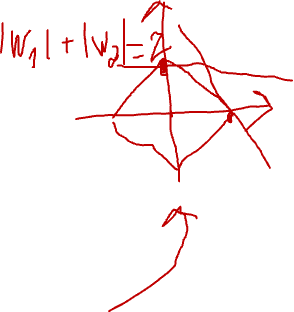 |W₁| + |W₂| = 2